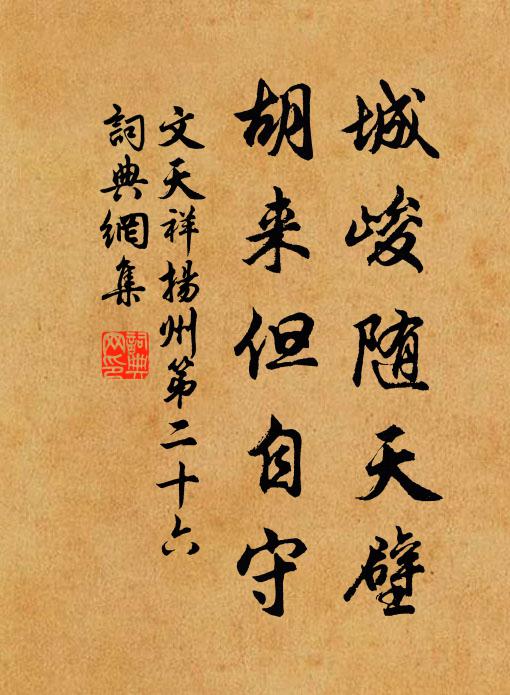 城峻随天壁
胡来但自守
文天祥揚州第二十六
詞典網集
詞典
网印